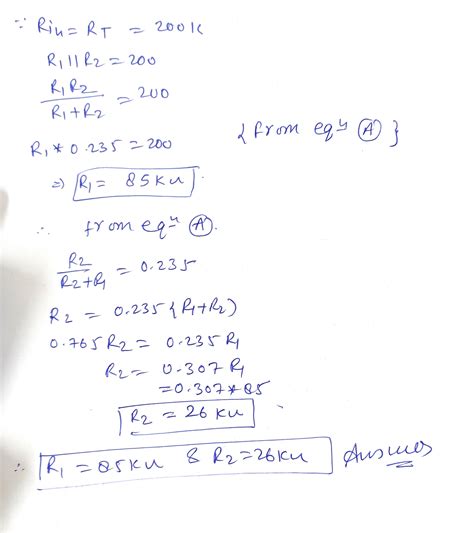 ∵ Rin = RT = 200K
R1 || R2 = 200
R1R2 / R1+R2 = 200
R1 * 0.235 = 200 {from eqn (A)}
⇒ R1 = 85KΩ
∴ from eqn (A).
R2 / R2+R1 = 0.235
R2 = 0.235 {R1+R2)
0.765 R2 = 0.235 R1
R2 = 0.307 R1
= 0.307 * 85
R2 = 26 KΩ
∴ R1 = 85KΩ & R2 = 26KΩ Answer